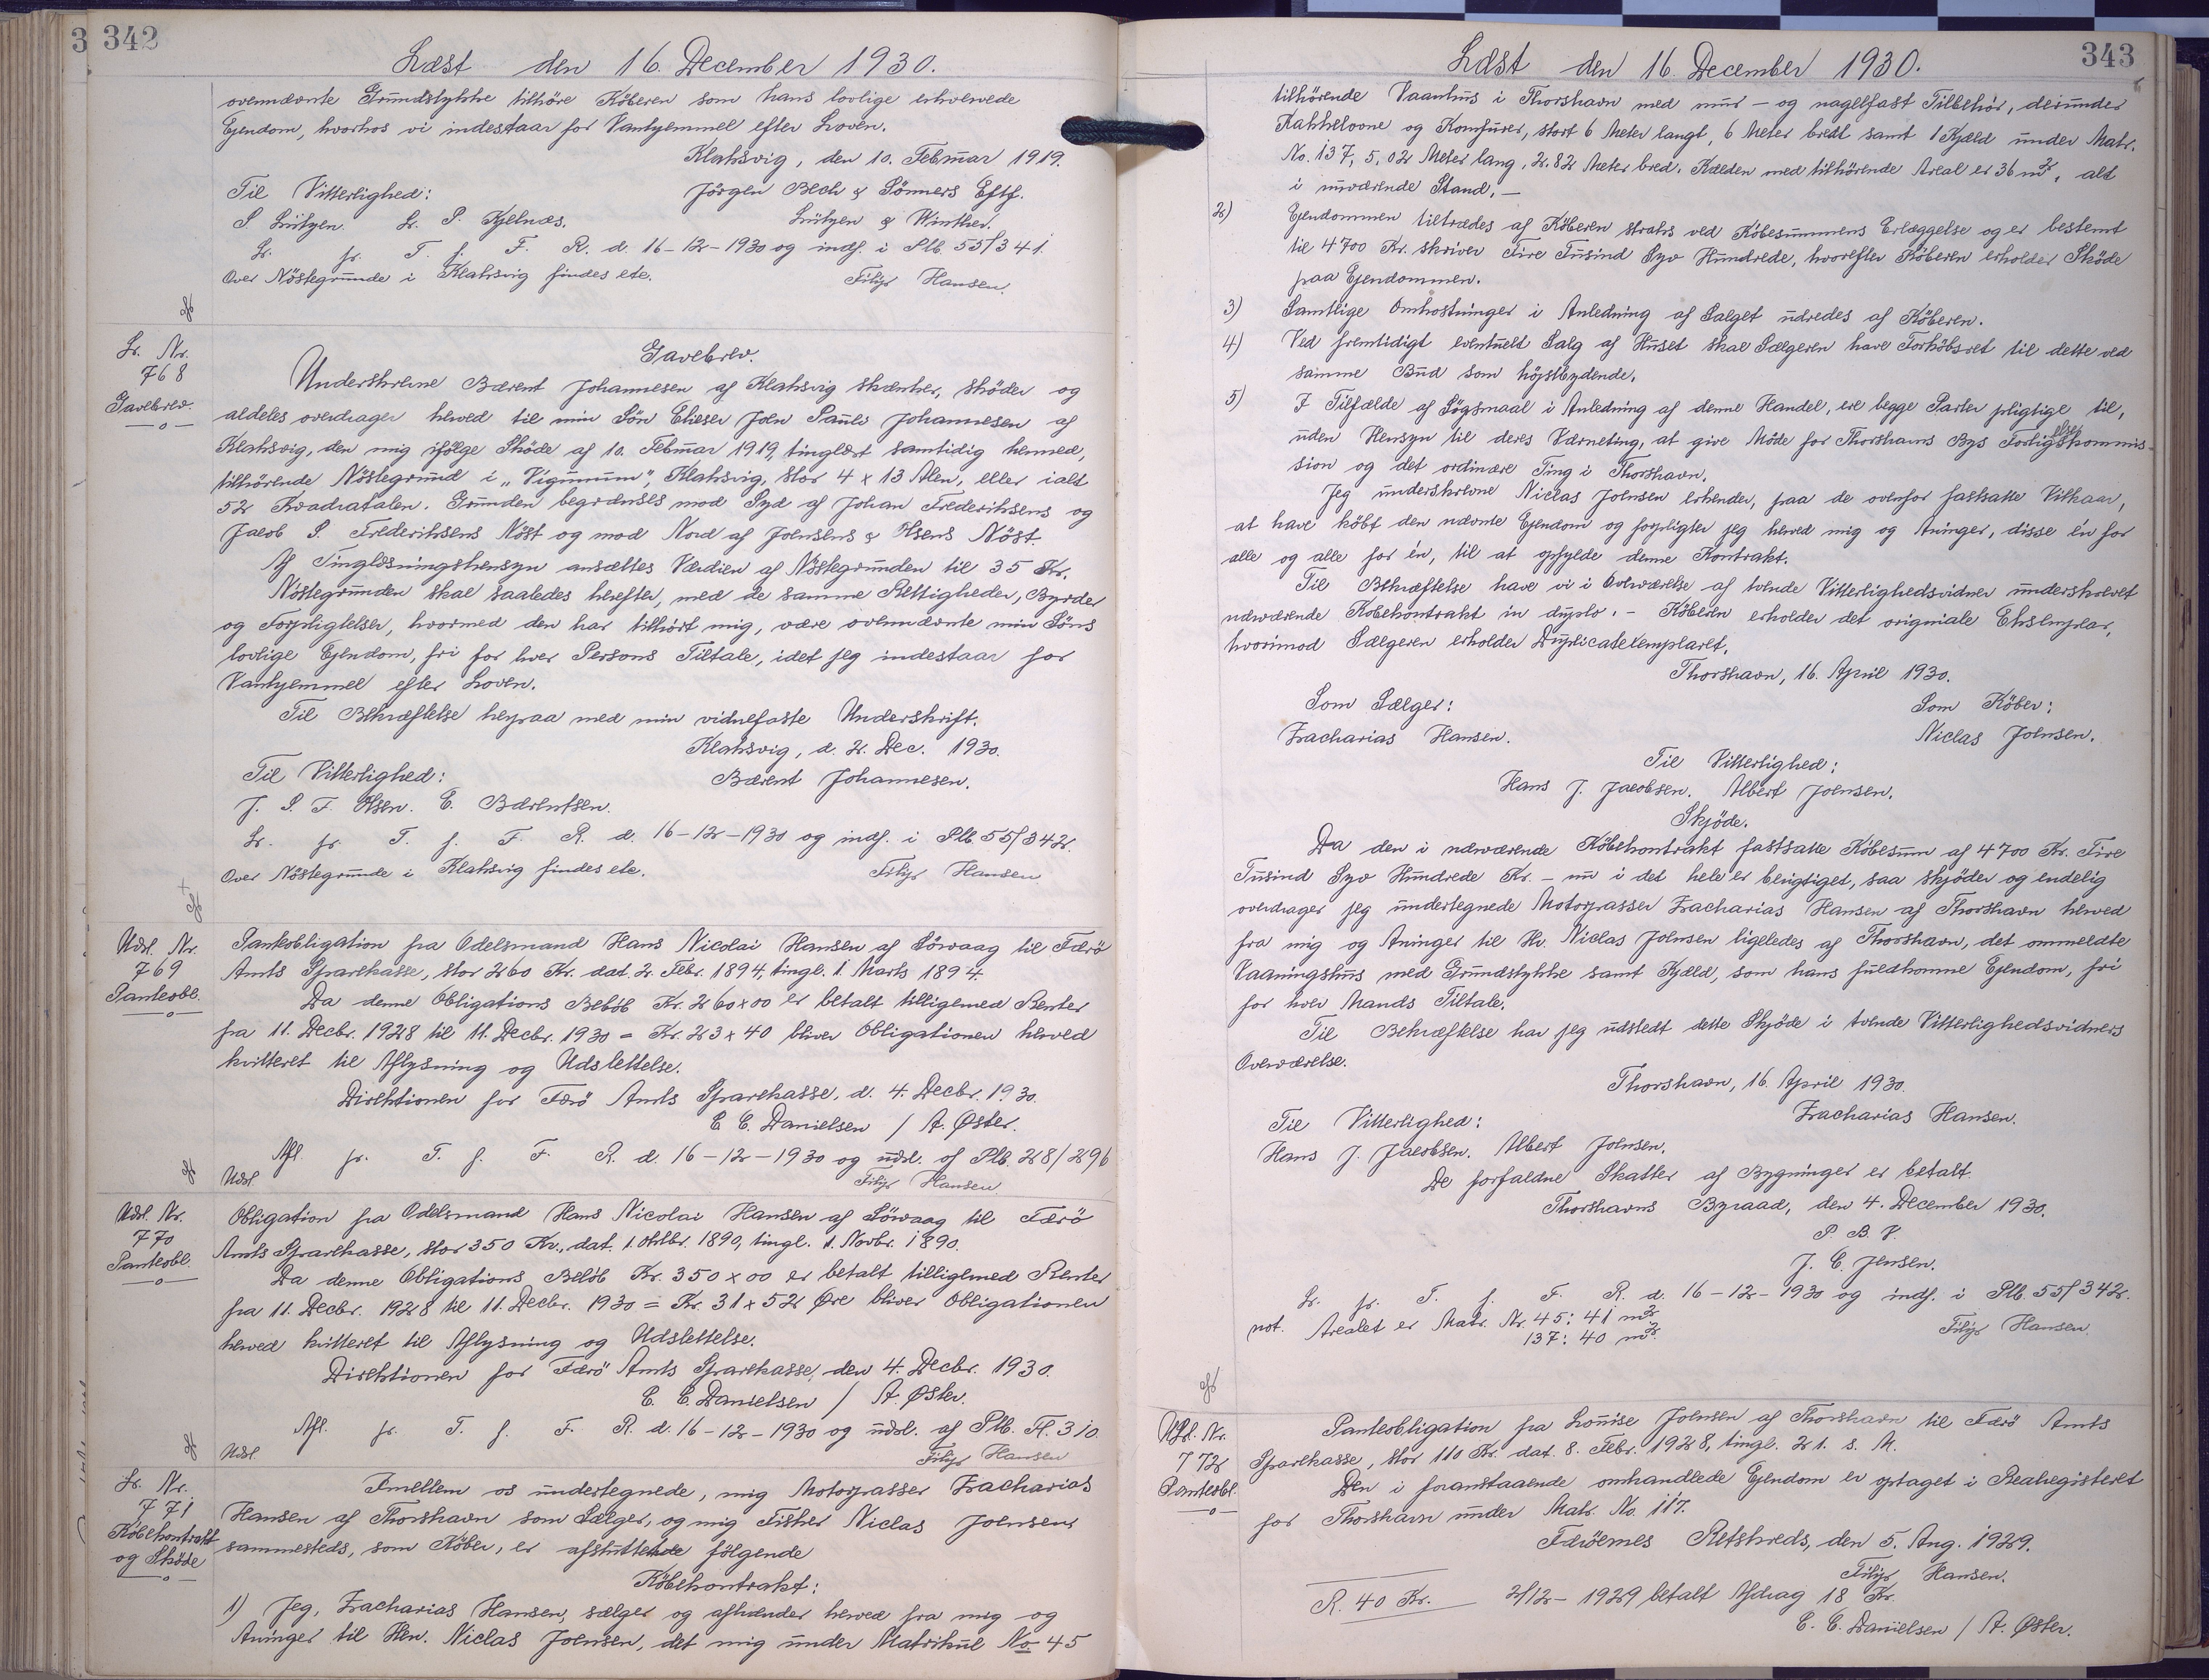 3 342
Læst den 16. December 1930.
ovennævnte Grundstykke tilhöre Köberen som hans lovlige erhvervede
Ejendom, hvorhos vi indestaar for Vanhjemmel efter Loven.
Klaksvig, den 10. Februar 1919.
Til Vitterlighed: Jörgen Bech & Sönners Eftf.
S Lützen. L. P. Kjelnæs. Lützen & Winther.
Lr. fr. T. f. F. R. d. 16-12-1930 og indf. i Plb. 55/341.
Over Nöstegrunde i Klaksvig findes etc. Filip Hansen.
Lr. Nr.
768
Gavebrev.
Gavebrev.
Underskrevne Bærent Johannesen af Klaksvig skænker, sköder og
aldeles overdrager herved til min Sön Elieser Joen Pauli Johannesen af
Klaksvig, den mig ifölge Sköde af 10. Februar 1919, tinglæst samtidig hermed,
tilhörende Nöstegrund i "Vigunum", Klaksvig, stor 4 x 13 Alen, eller ialt
52 Kvadratalen. Grunden begrænses mod Syd af Johan Frederiksens og
Jacob S. Frederiksens Nöst og mod Nord af Joensens & Olsens Nöst.
Af Tinglæsningshensyn ansættes Værdien af Nöstegrunden til 35 Kr.
Nöstegrunden skal saaledes herefter, med de samme Rettigheder, Byrder
og Forpligtelser, hvormed den har tilhört mig, være ovennævnte min Söns
lovlige Ejendom, fri for hver Persons Tiltale, idet jeg indestaar for
Vanhjemmel efter Loven.
Til Bekræftelse herpaa med min vidnefaste Underskrift.
Klaksvig, d. 2. Dec. 1930.
Til Vitterlighed: Bærent Johannesen.
J. S. F. Olsen. E. Bærentsen.
Lr. fr. T. f. F. R. d. 16-12-1930 og indf. i Plb. 55/342.
Over Nöstegrunde i Klaksvig findes etc. Filip Hansen
Udsl. Nr.
769
Panteobl.
Panteobligation fra Odelsmand Hans Nicolai Hansen af Sörvaag til Færö
Amts Sparekasse, stor 260 Kr. dat. 2. Febr. 1894, tingl. 1. Marts 1894.
Da denne Obligations Belöb Kr. 260 x 00 er betalt tilligemed Renter
fra 11. Decbr. 1928 til 11. Decbr. 1930 = Kr. 23 x 40 bliver Obligationen herved
kvitteret til Aflysning og Udslettelse.
Direktionen for Færö Amts Sparekasse, d. 4. Decbr. 1930.
C. C. Danielsen / A. Øster.
Afl. fr. T. f. F. R. d. 16-12-1930 og udsl. af Plb. 28/296
Udsl. Filip Hansen
Udsl. Nr.
770
Panteobl.
Obligation fra Odelsmand Hans Nicolai Hansen af Sörvaag til Færö
Amts Sparekasse, stor 350 Kr., dat. 1. Oktbr. 1890, tingl. 1. Novbr. 1890.
Da denne Obligations Belöb Kr. 350 x 00 er betalt tilligemed Renter
fra 11. Decbr. 1928 til 11. Decbr. 1930 = Kr. 31 x 52 Øre bliver Obligationen
herved kvitteret til Aflysning og Udslettelse.
Direktionen for Færö Amts Sparekasse, den 4. Decbr. 1930.
C. C. Danielsen / A. Øster.
Afl. fr. T. f. F. R. d. 16-12-1930 og udsl. af Plb. Fl. 310.
Udsl. Filip Hansen
Lr. Nr.
771
Köbekontrakt
og Sköde
Imellem os undertegnede, mig Motorpasser Zacharias
Hansen af Thorshavn som Sælger, og mig Fisker Niclas Joensen,
sammesteds, som Köber, er afsluttende fölgende
Köbekontrakt:
1) Jeg, Zacharias Hansen, sælger og afhænder herved fra mig og
Arvinger til Hrr. Niclas Joensen, det mig under Matrikul No. 45
343
Læst den 16. December 1930.
tilhörende Vaanhus i Thorshavn med mur- og nagelfast Tilbehör, derunder
Kakkelovne og Komfurer, stort 6 Meter langt, 6 Meter bredt samt 1 Kjæld under Matr.
No. 137, 5,02 Meter lang, 2.82 Meter bred. Kælden med tilhörende Areal er 36 m2, alt
i nuværende Stand.-
2) Ejendommen tiltrædes af Köberen straks ved Köbesummens Erlæggelse og er bestemt
til 4700 Kr. skriver Fire Tusind Syv Hundrede, hvorefter Köberen erholder Sköde
paa Ejendommen.
3) Samtlige Omkostninger i Anledning af Salget udredes af Köberen.
4) Ved fremtidigt eventuelt Salg af Huset skal Sælgeren have Forköbsret til dette ved
samme Bud som höjstbydende.
5) I Tilfælde af Sögsmaal i Anledning af denne Handel, ere begge Parter pligtige til,
uden Hensyn til deres Værneting, at give Möde for Thorshavns Bys Forligelseskommis-
sion og det ordinære Ting i Thorshavn.
Jeg underskrevne Niclas Joensen erkender, paa de ovenfor fastsatte Vilkaar,
at have köbt den nævnte Ejendom og forpligter jeg herved mig og Arvinger, disse én for
alle og alle for én, til at opfylde denne Kontrakt.
Til Bekræftelse have vi i Overværelse af tvende Vitterlighedsvidner underskrevet
nærværende Köbekontrakt in duplo.- Köberen erholder det originale Eksemplar,
hvorimod Sælgeren erholder Duplicatexemplaret.
Thorshavn, 16. April 1930.
Som Sælger: Som Köber:
Zacharias Hansen. Niclas Joensen.
Til Vitterlighed:
Hans J. Jacobsen. Albert Joensen.
Skjöde.
Da den i nærværende Köbekontrakt fastsatte Köbesum af 4700 Kr. Fire
Tusind Syv Hundrede Kr. - nu i det hele er berigtiget, saa skjöder og endelig
overdrager jeg undertegnede Motorpasser Zacharias Hansen af Thorshavn herved
fra mig og Arvinger til Hr. Niclas Joensen ligeledes af Thorshavn, det ommeldte
Vaaningshus med Grundstykke samt Kjæld, som hans fuldkomne Ejendom, fri
for hver Mands Tiltale.
Til Bekræftelse har jeg udstedt dette Skjöde i tvende Vitterlighedsvidners
Overværelse.
Thorshavn, 16. April 1930.
Til Vitterlighed: Zacharias Hansen.
Hans J. Jacobsen. Albert Joensen.
De forfaldne Skatter af Bygninger er betalt.
Thorshavns Byraad, den 4. December 1930.
P. B. V.
J. C. Jensen.
Lr. fr. T. f. F. R. d. 16-12-1930 og indf. i Plb. 55/342.
not. Arealet er Matr. Nr. 45: 41 m2
137: 40 m2. Filip Hansen.
Afsl. Nr.
772
Panteobl.
Panteobligation fra Louise Joensen af Thorshavn til Færö Amts
Sparekasse, stor 110 Kr. dat. 8. Febr. 1928, tingl. 21. s. M.
Den i foranstaaende omhandlede Ejendom er optaget i Realregisteret
for Thorshavn under Matr. No. 117.
Færöernes Retskreds, den 5. Aug. 1929.
Filip Hansen.
R. 40 Kr. 2/12-1929 betalt Afdrag 18 Kr.
C. C. Danielsen / A. Øster.